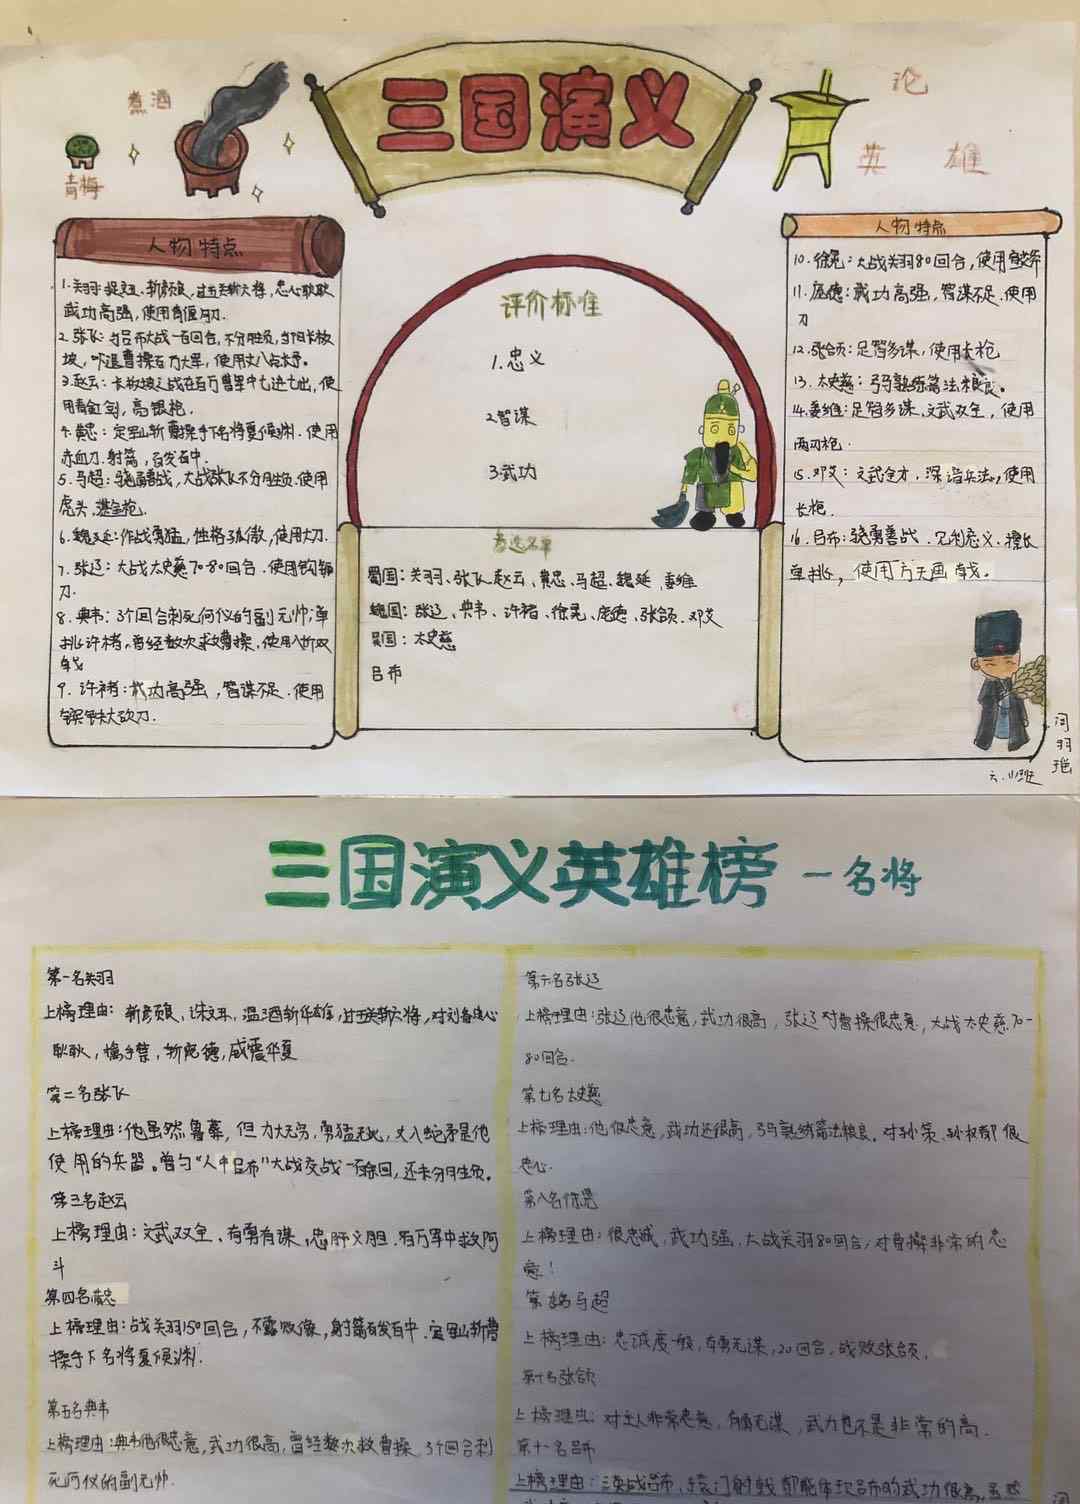 三国演义
煮酒
青梅
论
英雄
人物特点
1.关羽:捉吕,斩颜良,过五关斩六将,忠心耿耿
武功高强,使用青偃月刀.
2.张飞:与吕布大战一百回合,不分胜负,当阳长板
坡,吓退曹操百万大军,使用丈八点长矛。
3.赵云:长板坡之战在百万曹军中七进七出,使
用青釭剑,亮银枪.
4.黄忠:定军山斩曹操手下名将夏侯渊.使用
赤血刀.射箭,百发百中.
5.马超:骁勇善战,大战张飞不分胜负.使用
虎头,湛金枪.
6.魏延:作战勇猛,性格孤傲,使用大刀.
7.张辽:大战太史慈70-80回合.使用钩镰
刀.
8.典韦:3个回合刺死何仪的副元帅;单
挑许褚,曾经数次求曹操,使用八折双
戟
9.许褚:武功高强,智谋不足.使用
镔铁大砍刀.
评价标准
1.忠义
2.智谋
3.武功
备选名单
蜀国:关羽、张飞、赵云、黄忠、马超、魏延、姜维
魏国:张辽、典韦、许褚、徐晃、庞德、张郃、邓艾
吴国:太史慈
吕布
人物特点
10.徐晃:大战关羽80回合,使用宣花斧
11.庞德:武功高强,智谋不足.使用
刀
12.张郃:足智多谋,使用长枪
13.太史慈:弓马熟练箭法精良。
14.姜维:足智多谋,文武双全,使用
两刃枪.
15.邓艾:文武全才,深谙兵法,使用
长枪.
16.吕布:骁勇善战.见利忘义.擅长
单挑,使用方天画戟。
闫羽艳
六.11班
三国演义英雄榜-名将
第一名关羽
上榜理由:斩颜良、诛文丑、温酒斩华雄,过五关斩六将,对刘备忠心
耿耿,擒于禁,斩庞德,威震华夏
第二名张飞
上榜理由:他虽然鲁莽,但力大无穷,勇猛无比,丈八蛇矛是他
使用的兵器。曾与“人中吕布”大战交战一百余回,还未分胜负。
第三名赵云
上榜理由:文武双全、有勇有谋,忠肝义胆.百万军中救阿
斗
第四名黄忠
上榜理由:战关羽150回合,不露败像,射箭百发百中.定军山斩曹
操手下名将夏侯渊.
第五名典韦
上榜理由:典韦他很忠意,武功很高,曾经数次救曹操.3个回合刺
死何仪的副元帅.
第六名张辽
上榜理由:张辽他很忠意,武功很高,张辽对曹操很忠意,大战太史慈70-
80回合.
第七名太史慈
上榜理由:他很忠意,武功还很高,弓马熟练箭法精良.对孙策、孙权都很
忠心.
第八名徐晃
上榜理由:很忠诚,武功强,大战关羽80回合,对曹操非常的忠
意!
第九名马超
上榜理由:忠诚度一般,有勇无谋,20回合,战败张郃.
第十名张郃
上榜理由:对主人非常忠意,有勇无谋,武力也不是非常的高.
第十一名吕布
上榜理由:三英战吕布,辕门射戟都能体现吕布的武功很高,虽然